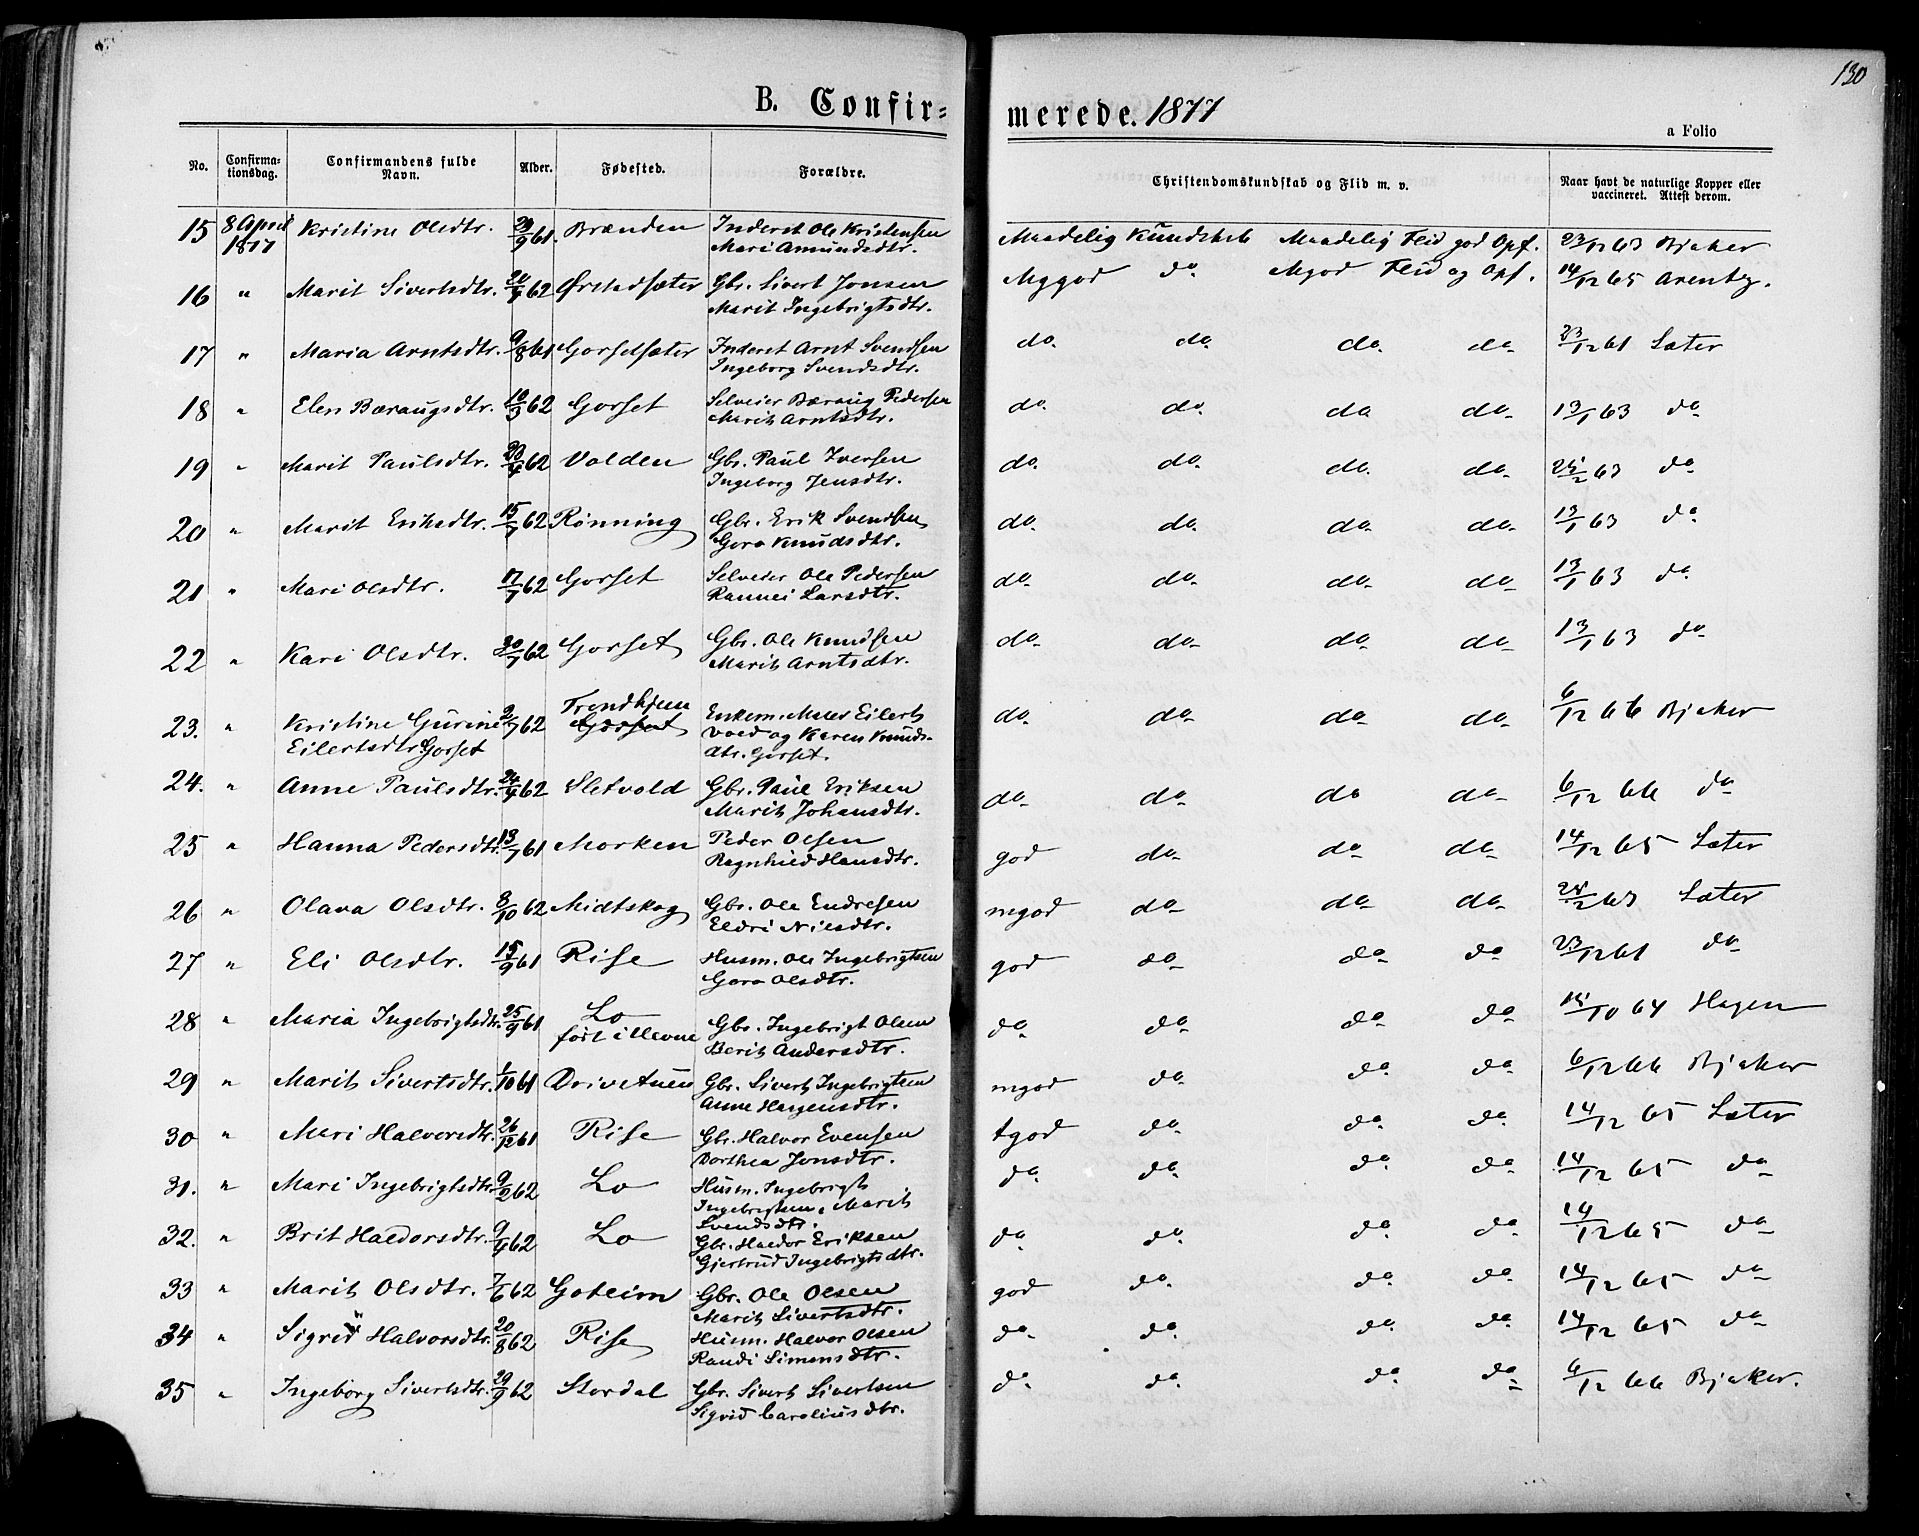 130
B. Confir=
merede. 1877
a Folio
No. Confirma-tionsdag. Confirmandens fulde Navn. Alder. Fødested. Forældre. Christendomskundskab og Flid m. v. Naar havt de naturlige Kopper eller vaccineret. Attest derom.
15 8 April 1877 Kristine Olsdtr. 29/9 61. Brænden Inderst Ole Kristensen Maadelig Kundskab Maadelig Flid god Opf. 23/12 63 Bjaker
Mari Amundsdtr.
16 " Marit Sivertsdtr. 20/9 62 Ørstadsæter Gbr. Sivert Jonsen Mggod do Mgod Flid og Opf. 14/12 65 Arentz.
Marit Ingebrigtsdtr.
17 " Maria Arntsdtr. 9/8 61 Gorsetsæter Inderst Arnt Svendsen do. do. do. do. 23/12 61 Sæter
Ingeborg Svendsdtr.
18 " Elen Bæraugsdtr. 10/3 62 Gorset Selveier Bæraug Pedersen do. do. do do. 13/1 63 do
Marit Arntsdtr.
19 " Marit Paulsdtr. 20/4 62 Volden Gbr. Paul Iversen do. do. do. do. 25/2 63 do
Ingeborg Jensdtr.
20 " Marit Eriksdtr. 15/7 62 Rønning Gbr. Erik Svendsen do. do. do. do. 13/1 63 do
Goro Knudsdtr.
21 " Mari Olsdtr. 17/7 62 Gorset Selveier Ole Pedersen do. do. do. do. 13/1 63 do
Rannei Larsdtr.
22 " Kari Olsdtr. 30/7 62 Gorset Gbr. Ole Knudsen do. do. do. do. 13/1 63 do
Marit Arntsdtr.
Trondhjem
23. " Kristine Gurine 2/7 62 Gorset Enkem. Maler Eilert do. do. do. do. 6/12 66 Bjaker
Eilertsdtr. Gorset Vold og Karen Knuds-
dtr. Gorset.
24. " Anne Paulsdtr. 24/4 62 Sletvold Gbr. Paul Eriksen do. do. do do. 6/12 66 do
Marit Johansdtr.
25 " Hanna Pedersdtr. 13/7 61 Morken Peder Olsen god do. do. do. 14/12 65 Sæter
Ragnhild Hansdtr.
26 " Olava Olsdtr. 3/10 62 Midtskog Gbr. Ole Endresen mgod do. do. do. 25/2 63 Sæter
Eldri Nilsdtr.
27 " Eli Olsdtr. 15/9 61 Rise Husm. Ole Ingebrigtsen god do. do. do 23/12 61 do
Goro Olsdtr.
28 " Maria Ingebrigtsdtr. 25/9 61 Lo Gbr. Ingebrigt Olsen do. do. do. do. 15/10 64 Hagen
født i Hevne Berit Andersdtr.
29 " Marit Sivertsdtr. 1/10 61 Drivstuen Gbr. Sivert Ingebrigtsen mgod do. do. do. 6/12 66 Bjaker
Anne Hagensdtr.
30 " Mari Halvorsdtr. 26/12 61 Rise Gbr. Halvor Evensen tgod do. do. do. 14/12 65 Sæter
Dorthea Jonsdtr.
31. " Mari Ingebrigtsdtr. 9/2 62 Lo Husm. Ingebrigt do. do. do. do. 14/12 65 do
Ingebrigtsen, Marit
Svendsdtr.
32. " Brit Haldorsdtr. 9/4 62 Lo Gbr. Haldor Eriksen do. do. do. do. 14/12 65 do
Gjertrud Ingebrigtsdtr.
33 " Marit Olsdtr. 7/6 62 Goteim Gbr. Ole Olsen god do. do. do. 14/12 65 do
Marit Sivertsdtr.
34 " Sigrid Halvorsdtr. 20/8 62 Rise Husm. Halvor Olsen do. do. do. do. 14/12 65 do
Randi Simensdtr.
35 " Ingeborg Sivertsdtr. 29/9 62 Stordal Gbr. Sivert Sivertsen do. do. do. do. 6/12 66 Bjaker.
Sigrid Caroliusdtr.